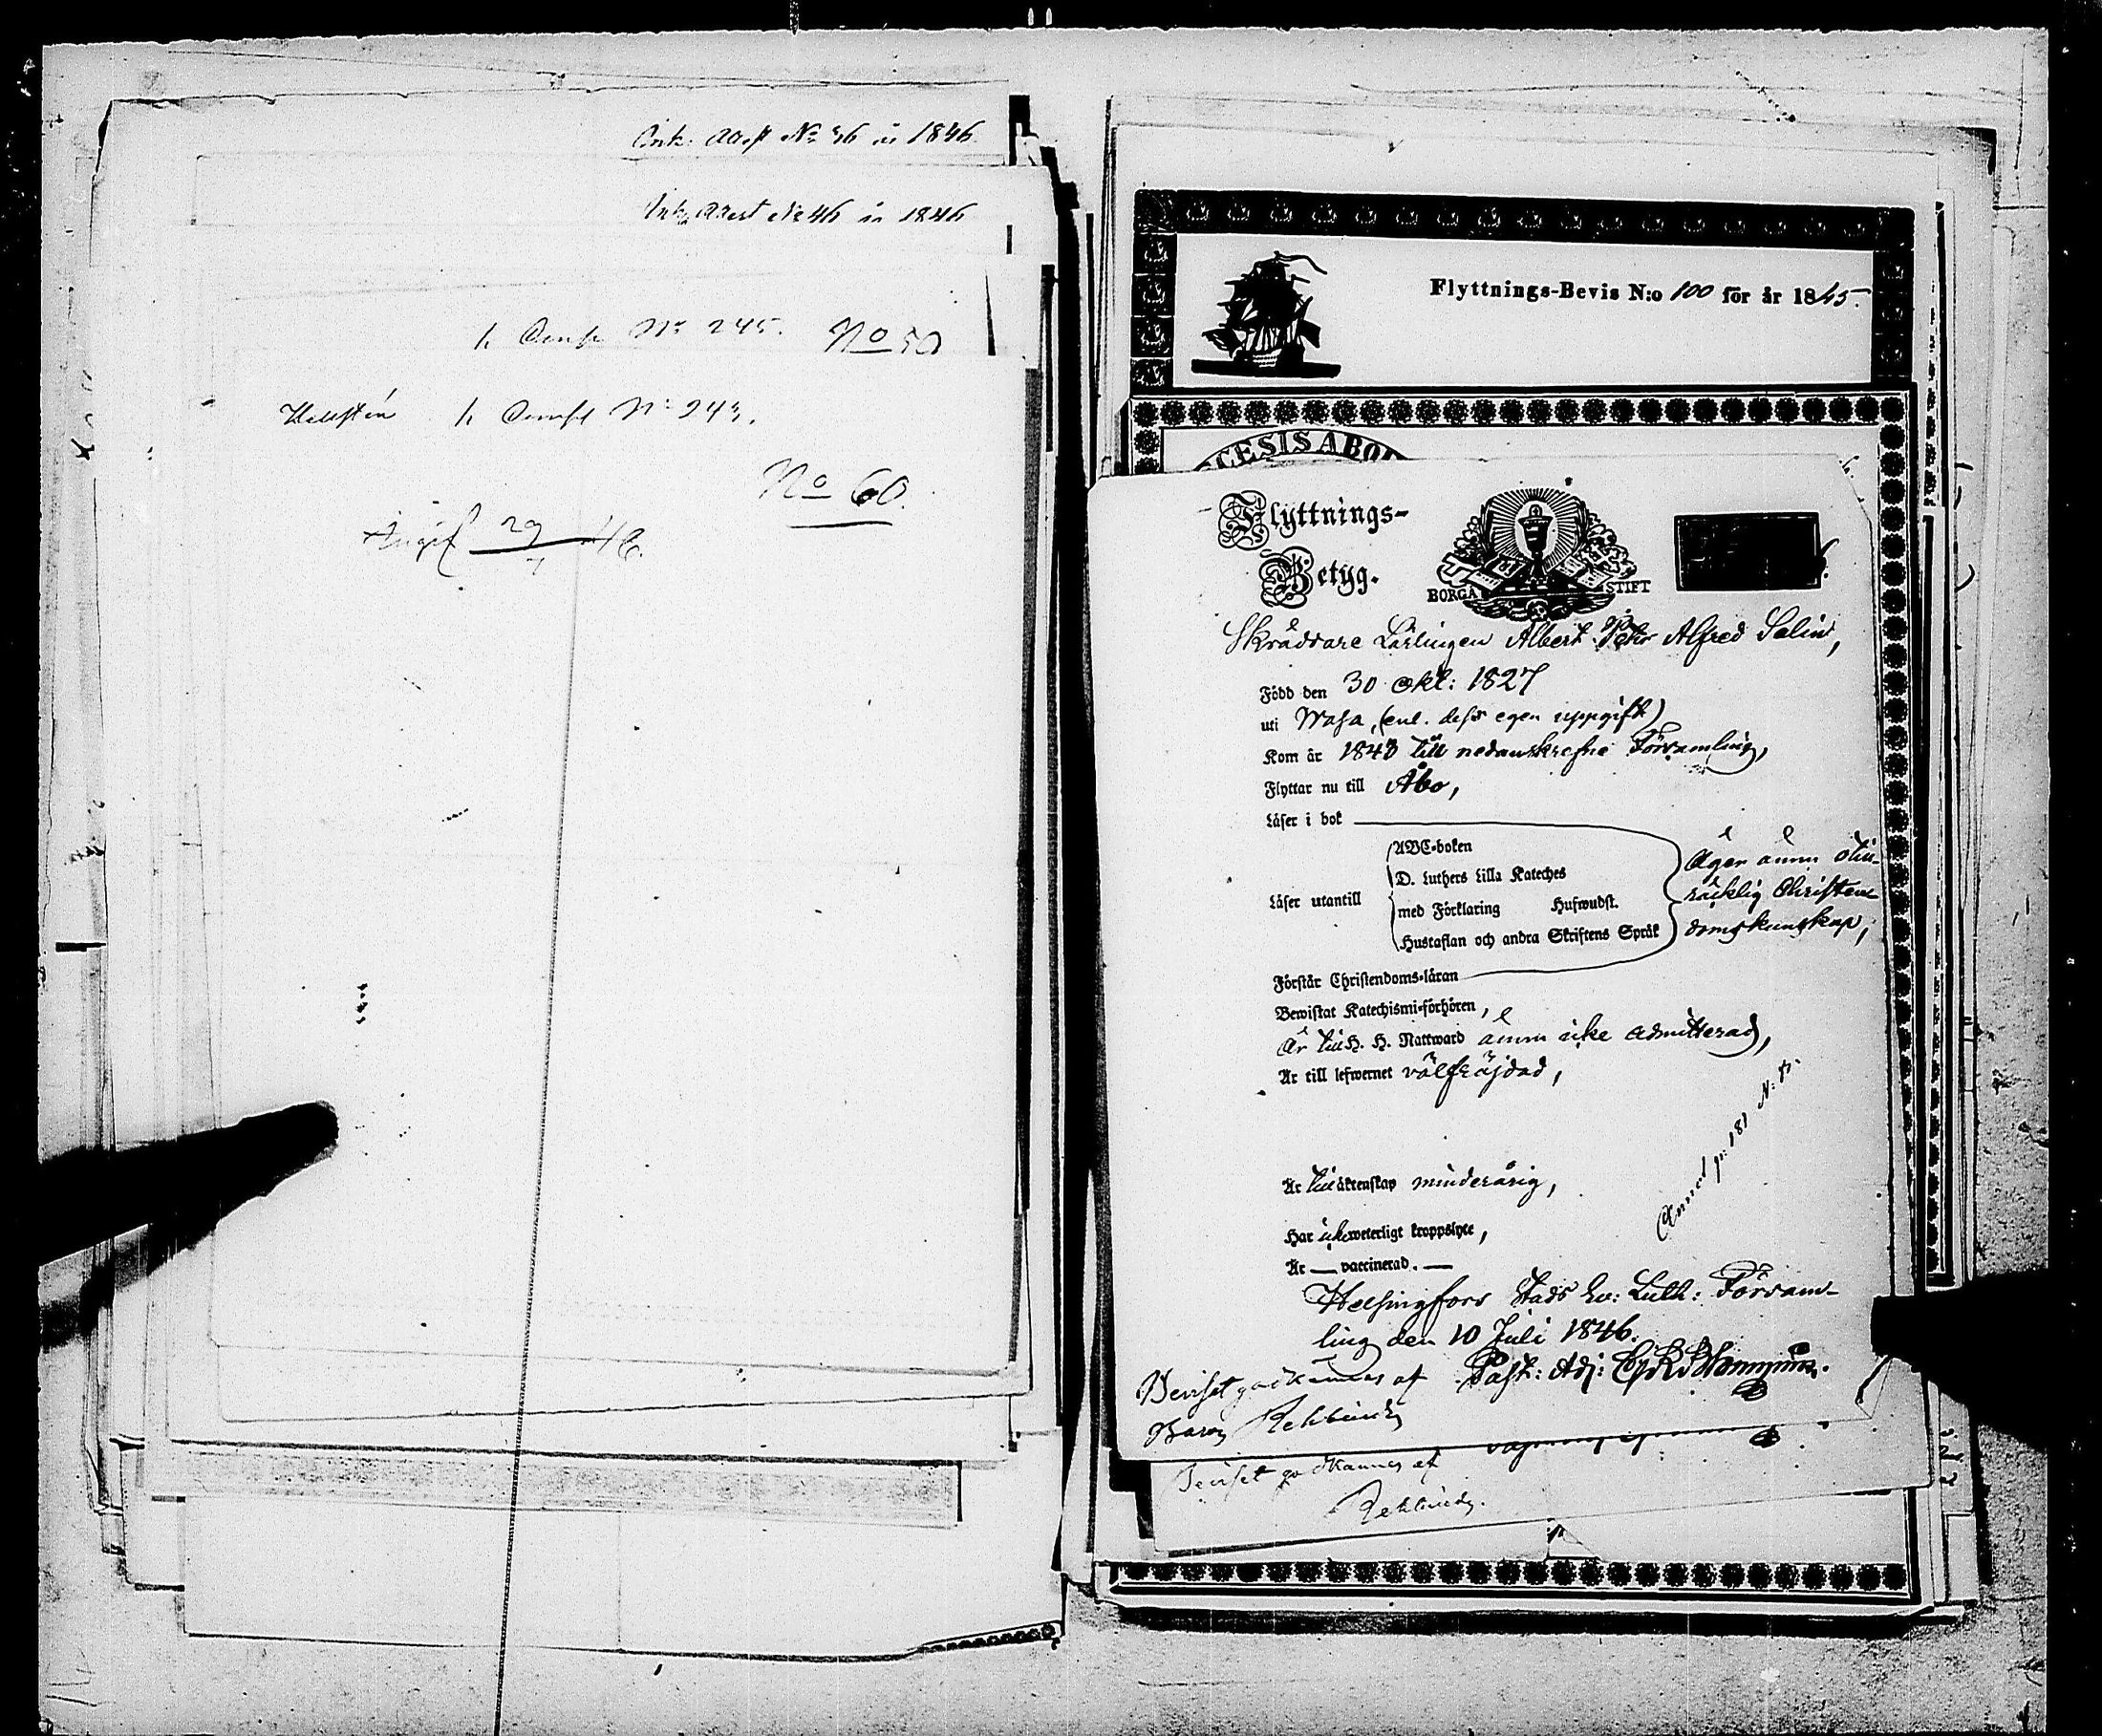 Ink. Attest No 46 år 1846
Ink. Attest No 46 år 1846
No 245. No 50
No 243.
No 60.
Angif 29 46.
Flyttnings-Bevis N:o 100 för år 1845.
CESIS ABO
Flyttnings-
Betyg.
BORGÅ STIFT
Skräddare Lärlingen Albert Petr Alfred Salin,
Född den 30 Okt: 1827
uti Wasa, (enl. dess egen uppgift)
Kom år 1843 till nedanskrefne Församling,
Flyttar nu till Åbo,
Läser i bok
Läser utantill
ABC-boken
D. Luthers Lilla Kateches
med Förklaring Hufwudst.
Hustaflan och andra Skriftens Språk
Äger ännu otill-
räcklig Christen-
domskunskap,
Förstår Christendoms-läran
Bewistat Katechismi-förhören,
Är till H. H. Nattward ännu icke admitterad,
Är till lefwernet välfräjdad,
Är till äktenskap minderårig,
Har icke weterligt kroppslyte,
Är — vaccinerad. —
Annot p: 181 N: B.
Helsingfors Stads Ev: Luth: Försam-
ling den 10 Juli 1846.
Past: Adj:
Beviset godkännes af
Rehbinder
Beviset godkännes af
Rehbinder.